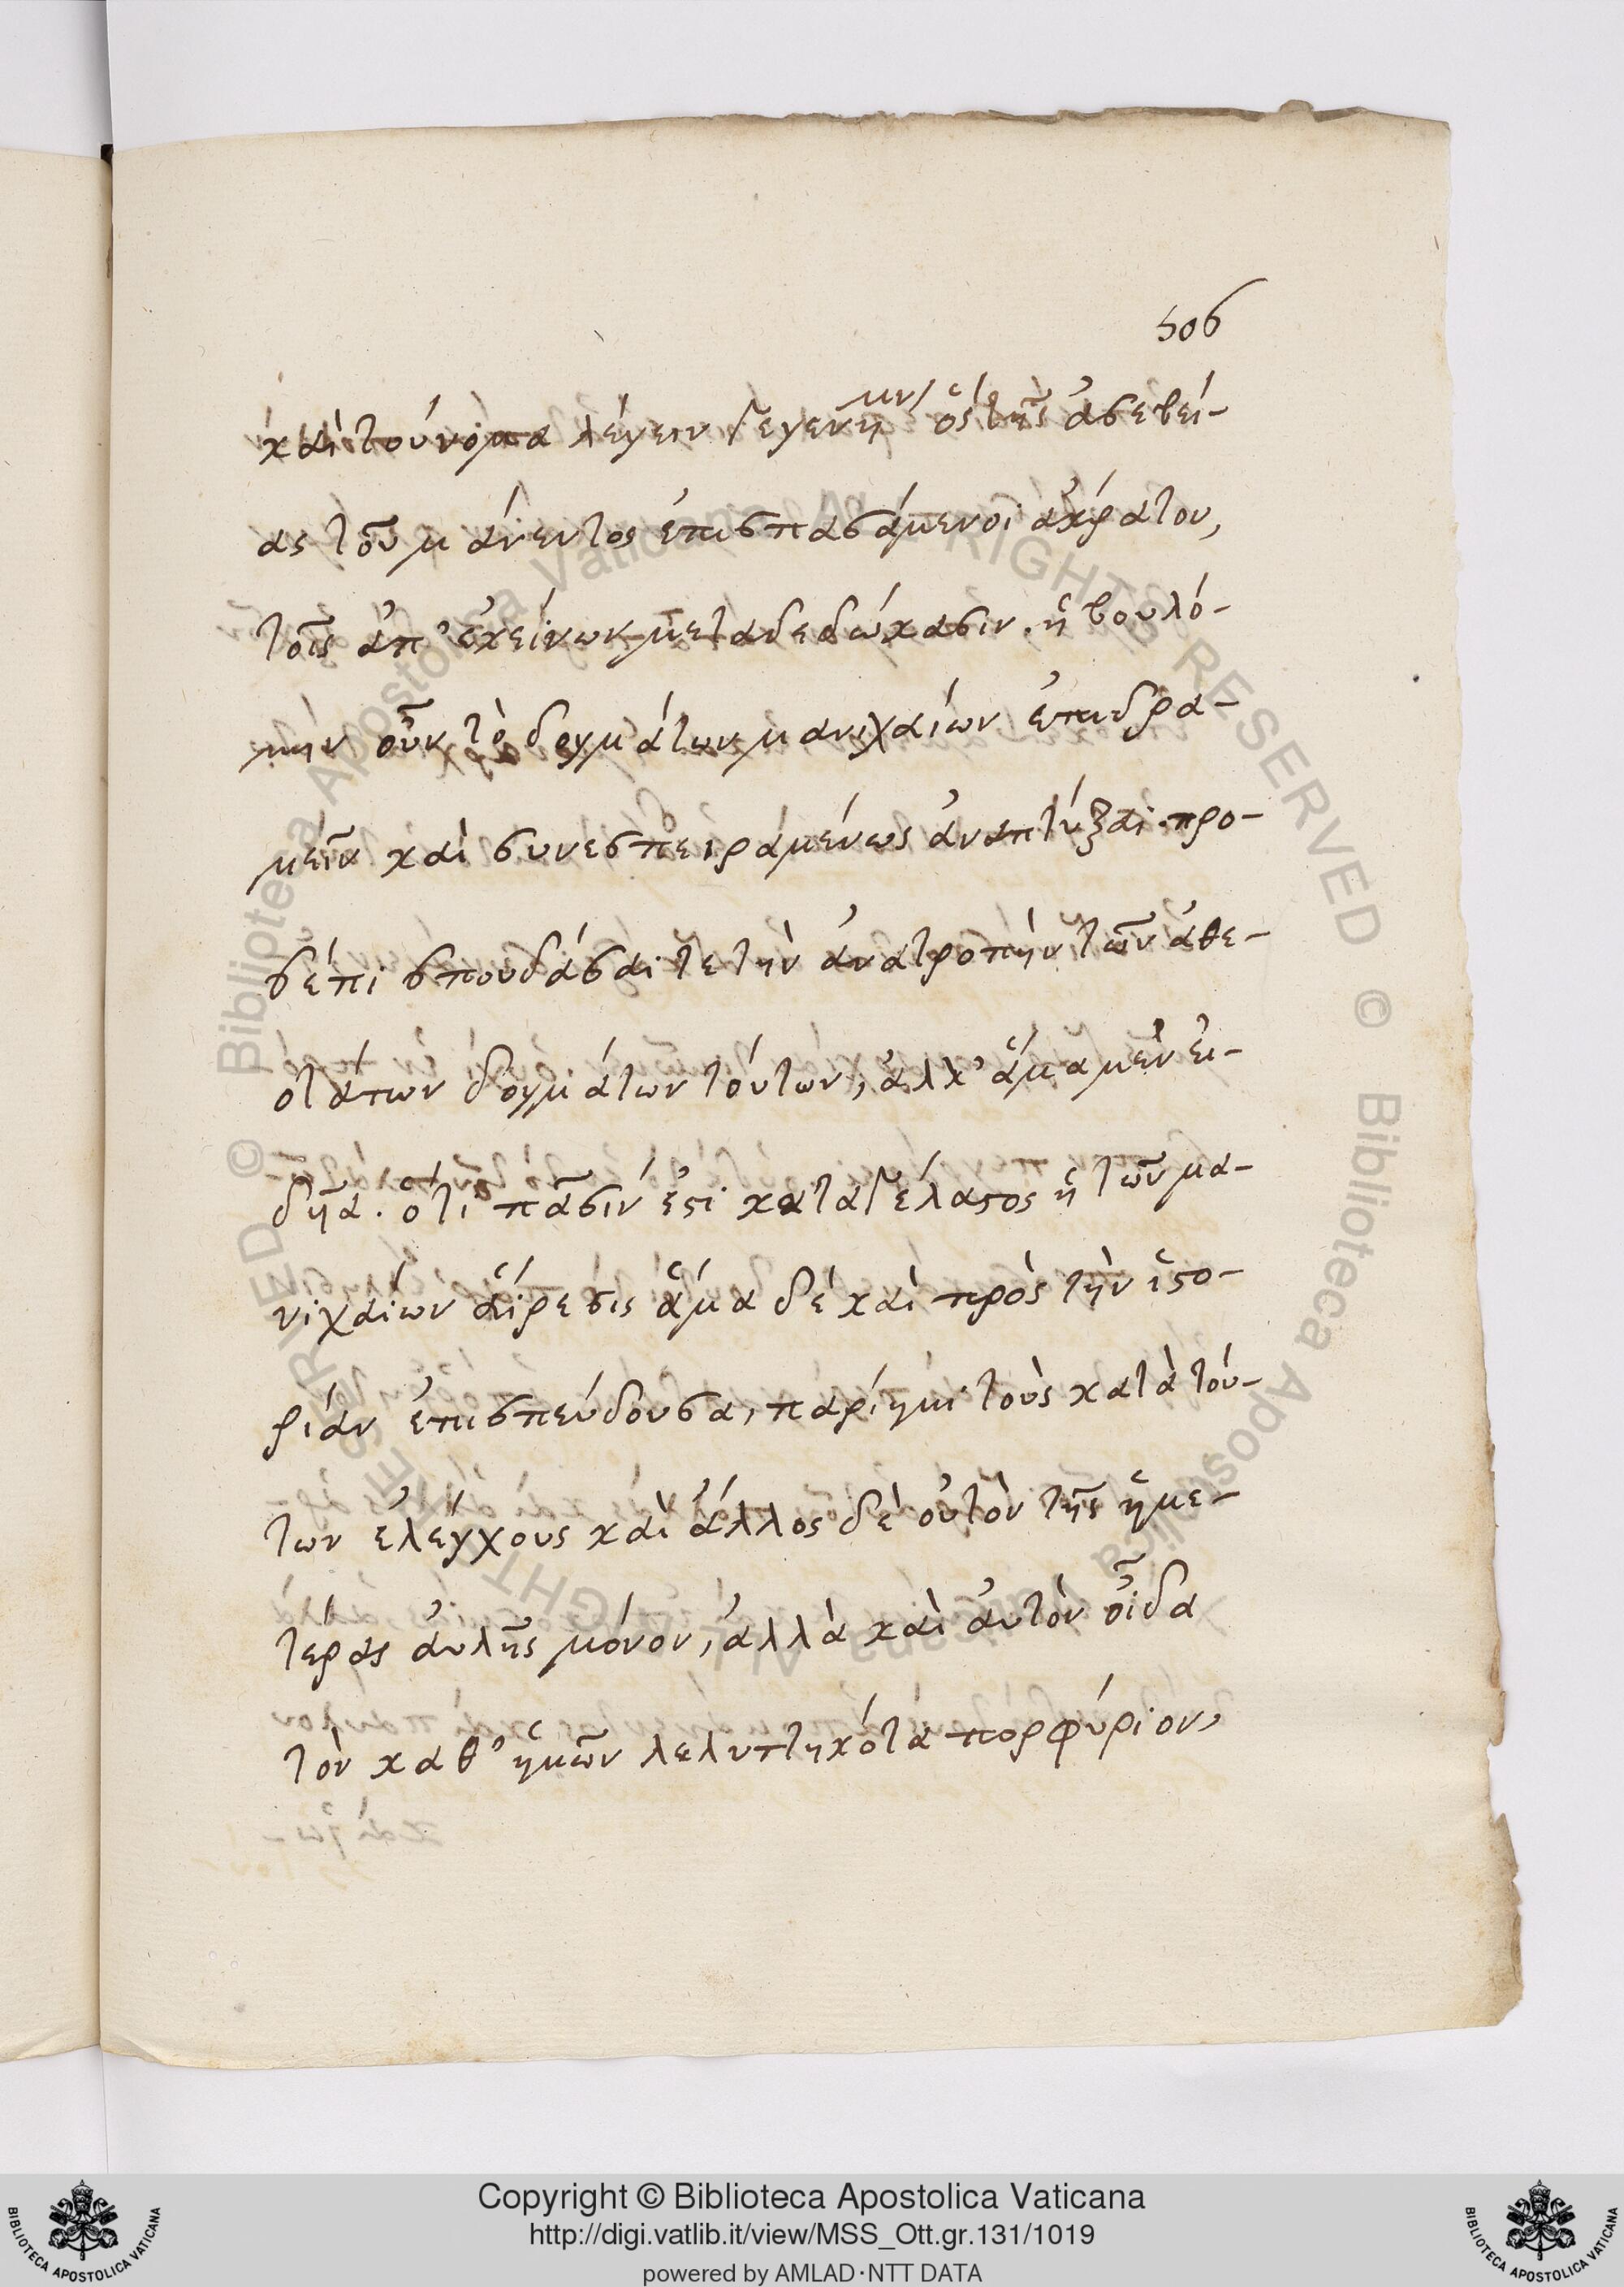 506
μν
καὶ τοὐνόμα λέγειν γεγενη ὃς τῆς ἀσεβεί-
ας τοῦ μάνεντος ἐπισπασάμενοι ἀκράτου,
τοῖς ἀπ' ἐκείνων μεταδεδώκασιν. ἠβουλό-
μην οὖν τὸ δογμάτων μανιχαίων ἐπιδρα-
μεῖν καὶ συνεσπειραμένως ἀναπτύξαι. προ-
σέπι σπουδάσαι τε τὴν ἀνατροπὴν τῶν ἀθε-
οτάπων δογμάτων τούτων, ἀλλ' ἅμα μὲν εἰ-
δῆα. ὅτι πᾶσίν ἐστι καταγέλαστος ἡ τῶν μα-
νιχαίων αἵρεσις ἅμα δὲ καὶ πρὸς τὴν ἱστο-
ρίαν ἐπισπεύδουσα, παρίημι τοὺς κατὰ τού-
των ἐλέγχους καὶ ἄλλος δὲ οὐτὸν τῆς ἡμε-
τέρας ἀυλῆς μόνον, ἀλλὰ καὶ ἀυτὸν οἶδα
τὸν καθ' ἡμῶν λελυπτηκότα πορφύριον,
Copyright © Biblioteca Apostolica Vaticana
http://digi.vatlib.it/view/MSS_Ott.gr.131/1019
powered by AMLAD·NTT DATA
BIBLIOTECA APOSTOLICA VATICANA
BIBLIOTECA APOSTOLICA VATICANA